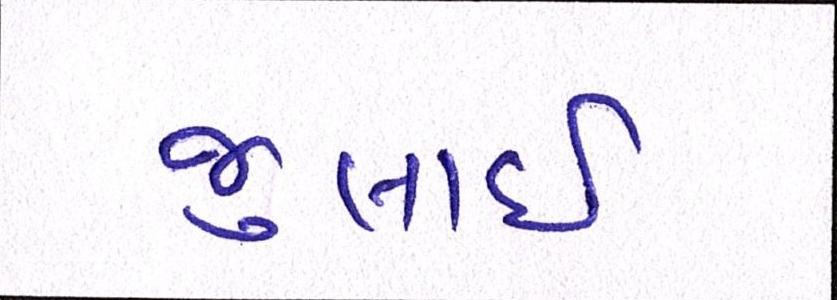 જુલાઈ